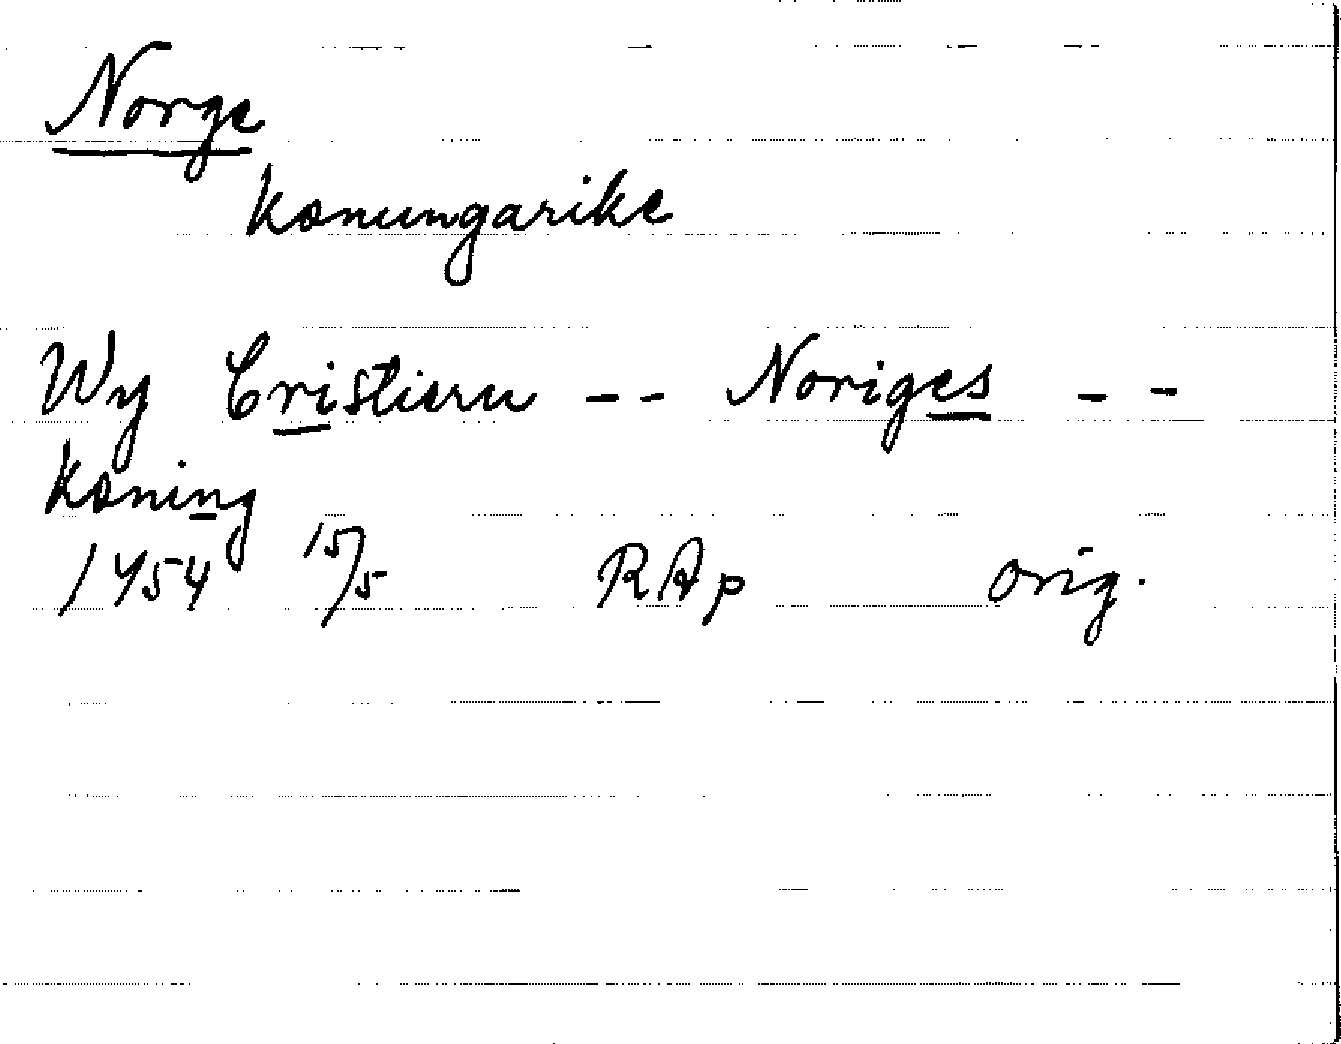 Norge
konungarike
Wy Cristiern -- Noriges --
koning
1454 15/5 RAp orig.